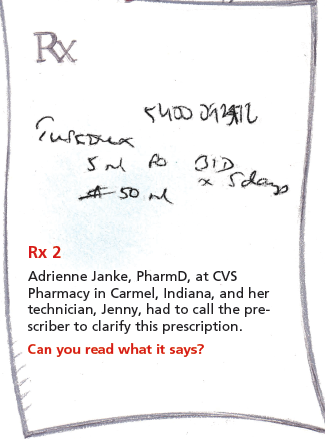 Rx
Tussionex
5 ml PO BID
x 5 days
# 50 ml
Rx 2
Adrienne Janke, PharmD, at CVS
Pharmacy in Carmel, Indiana, and her
technician, Jenny, had to call the pre-
scriber to clarify this prescription.
Can you read what it says?